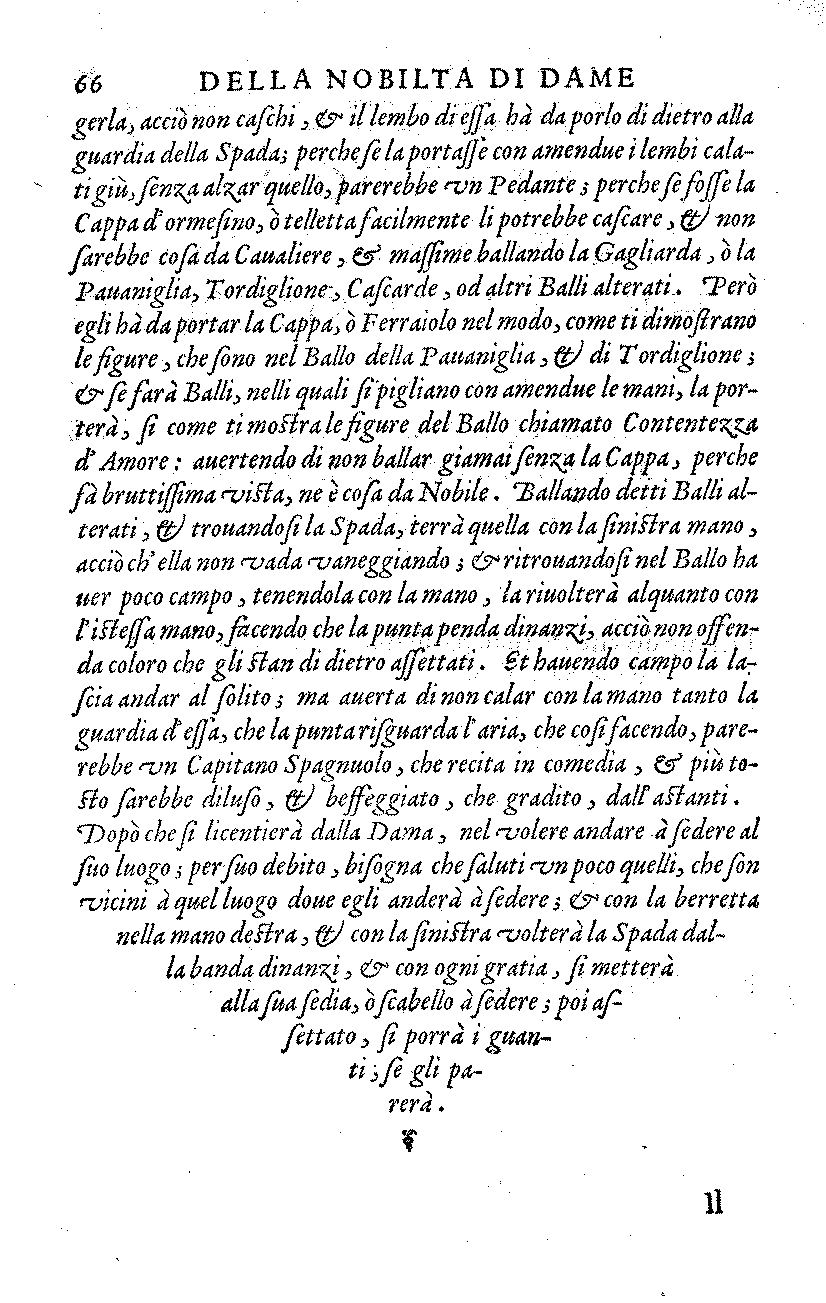 66 DELLA NOBILTA DI DAME
gerla, acciò non caſchi, & il lembo di eſſa hà da porlo di dietro alla
guardia della Spada; perche ſe la portaſſe con amendue i lembi cala-
ti giù, ſenza alzar quello, parerebbe vn Pedante; perche ſe foſſe la
Cappa d'ormeſino, ò telletta facilmente li potrebbe caſcare, & non
ſarebbe coſa da Caualiere, & maſſime ballando la Gagliarda, ò la
Pauaniglia, Tordiglione, Caſcarde, od altri Balli alterati. Però
egli hà da portar la Cappa, ò Ferraiolo nel modo, come ti dimoſtrano
le figure, che ſono nel Ballo della Pauaniglia, & di Tordiglione;
& ſe farà Balli, nelli quali ſi pigliano con amendue le mani, la por-
terà, ſi come ti moſtra le figure del Ballo chiamato Contentezza
d'Amore: auertendo di non ballar giamai ſenza la Cappa, perche
fà bruttiſſima viſta, ne è coſa da Nobile. Ballando detti Balli al-
terati, & trouandoſi la Spada, terrà quella con la ſiniſtra mano,
acciò ch'ella non vada vaneggiando; & ritrouandoſi nel Ballo ha
uer poco campo, tenendola con la mano, la riuolterà alquanto con
l'iſteſſa mano, facendo che la punta penda dinanzi, acciò non offen-
da coloro che gli ſtan di dietro aſſettati. Et hauendo campo la la-
ſcia andar al ſolito; ma auerta di non calar con la mano tanto la
guardia d'eſſa, che la punta riſguarda l'aria, che coſi facendo, pare-
rebbe vn Capitano Spagnuolo, che recita in comedia, & più to-
ſto ſarebbe diluſo, & beffeggiato, che gradito, dall'aſtanti.
Dopò che ſi licentierà dalla Dama, nel volere andare à ſedere al
ſuo luogo; per ſuo debito, biſogna che ſaluti vn poco quelli, che ſon
vicini à quel luogo doue egli anderà à ſedere; & con la berretta
nella mano deſtra, & con la ſiniſtra volterà la Spada dal-
la banda dinanzi, & con ogni gratia, ſi metterà
alla ſua ſedia, ò ſcabello à ſedere; poi aſ-
ſettato, ſi porrà i guan-
ti, ſe gli pa-
rerà.
Il